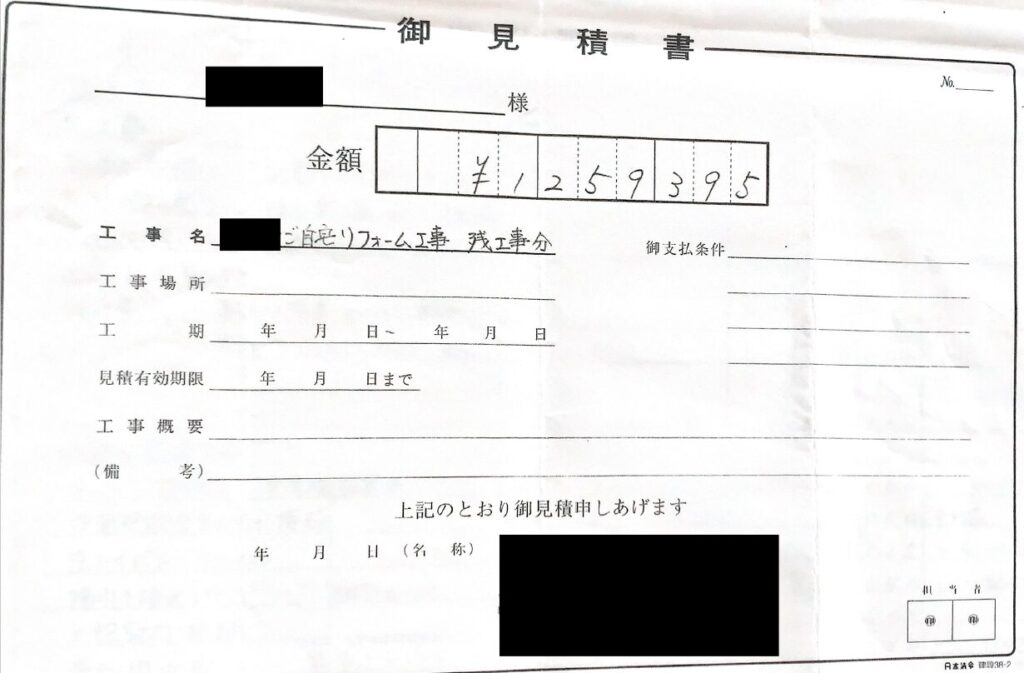 御見積書
No.
様
金額 ¥1259395
工事名 ご自宅リフォーム工事 残工事分
御支払条件
工事場所
工期 年 月 日~ 年 月 日
見積有効期限 年 月 日まで
工事概要
(備考)
上記のとおり御見積申しあげます
年 月 日 (名称)
担当者
印 印
日本法令 建設38-2